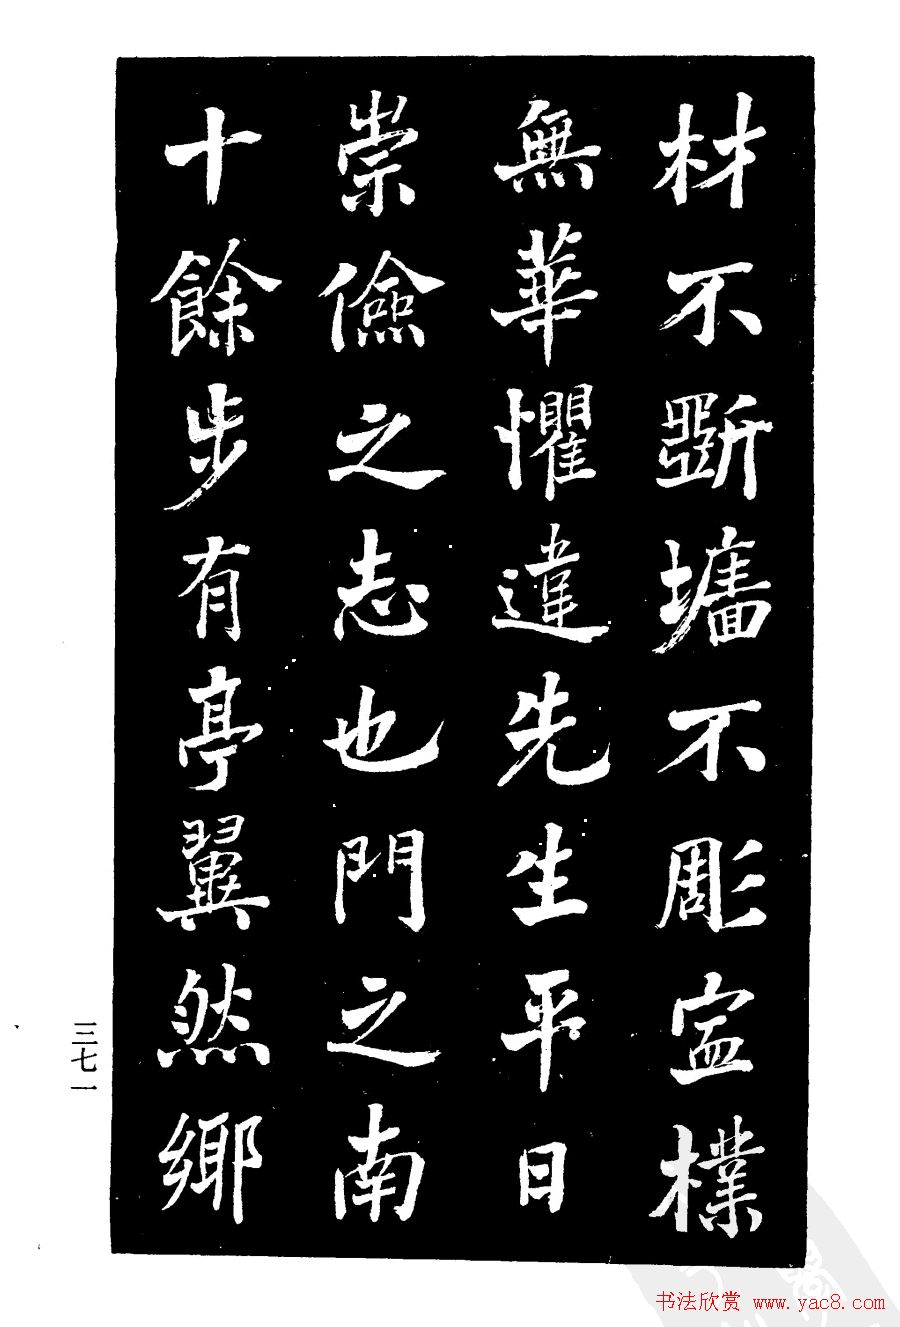 材不斲墉不彫寍樸
無華懼違先生平日
崇儉之志也門之南
十餘步有亭翼然鄉
三七一
书法欣赏 www.yac8.com